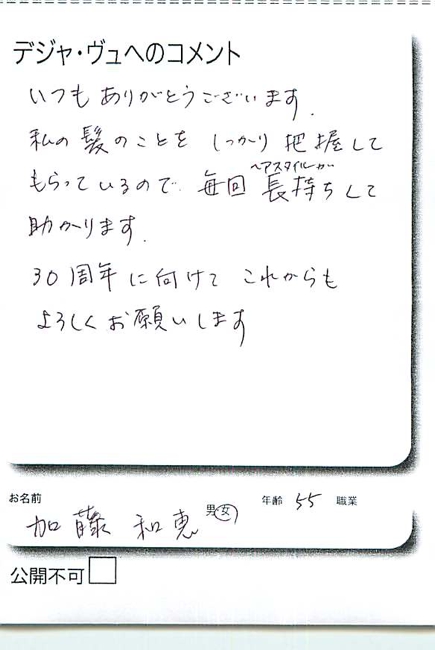 デジャ・ヴュへのコメント
いつもありがとうございます.
私の髪のことを しっかり把握して
ヘアスタイルが
もらっているので 毎回 長持ちして
助かります.
30周年に向けて これからも
よろしくお願いします
お名前 男 女 年齢 55 職業
加藤 和恵
公開不可